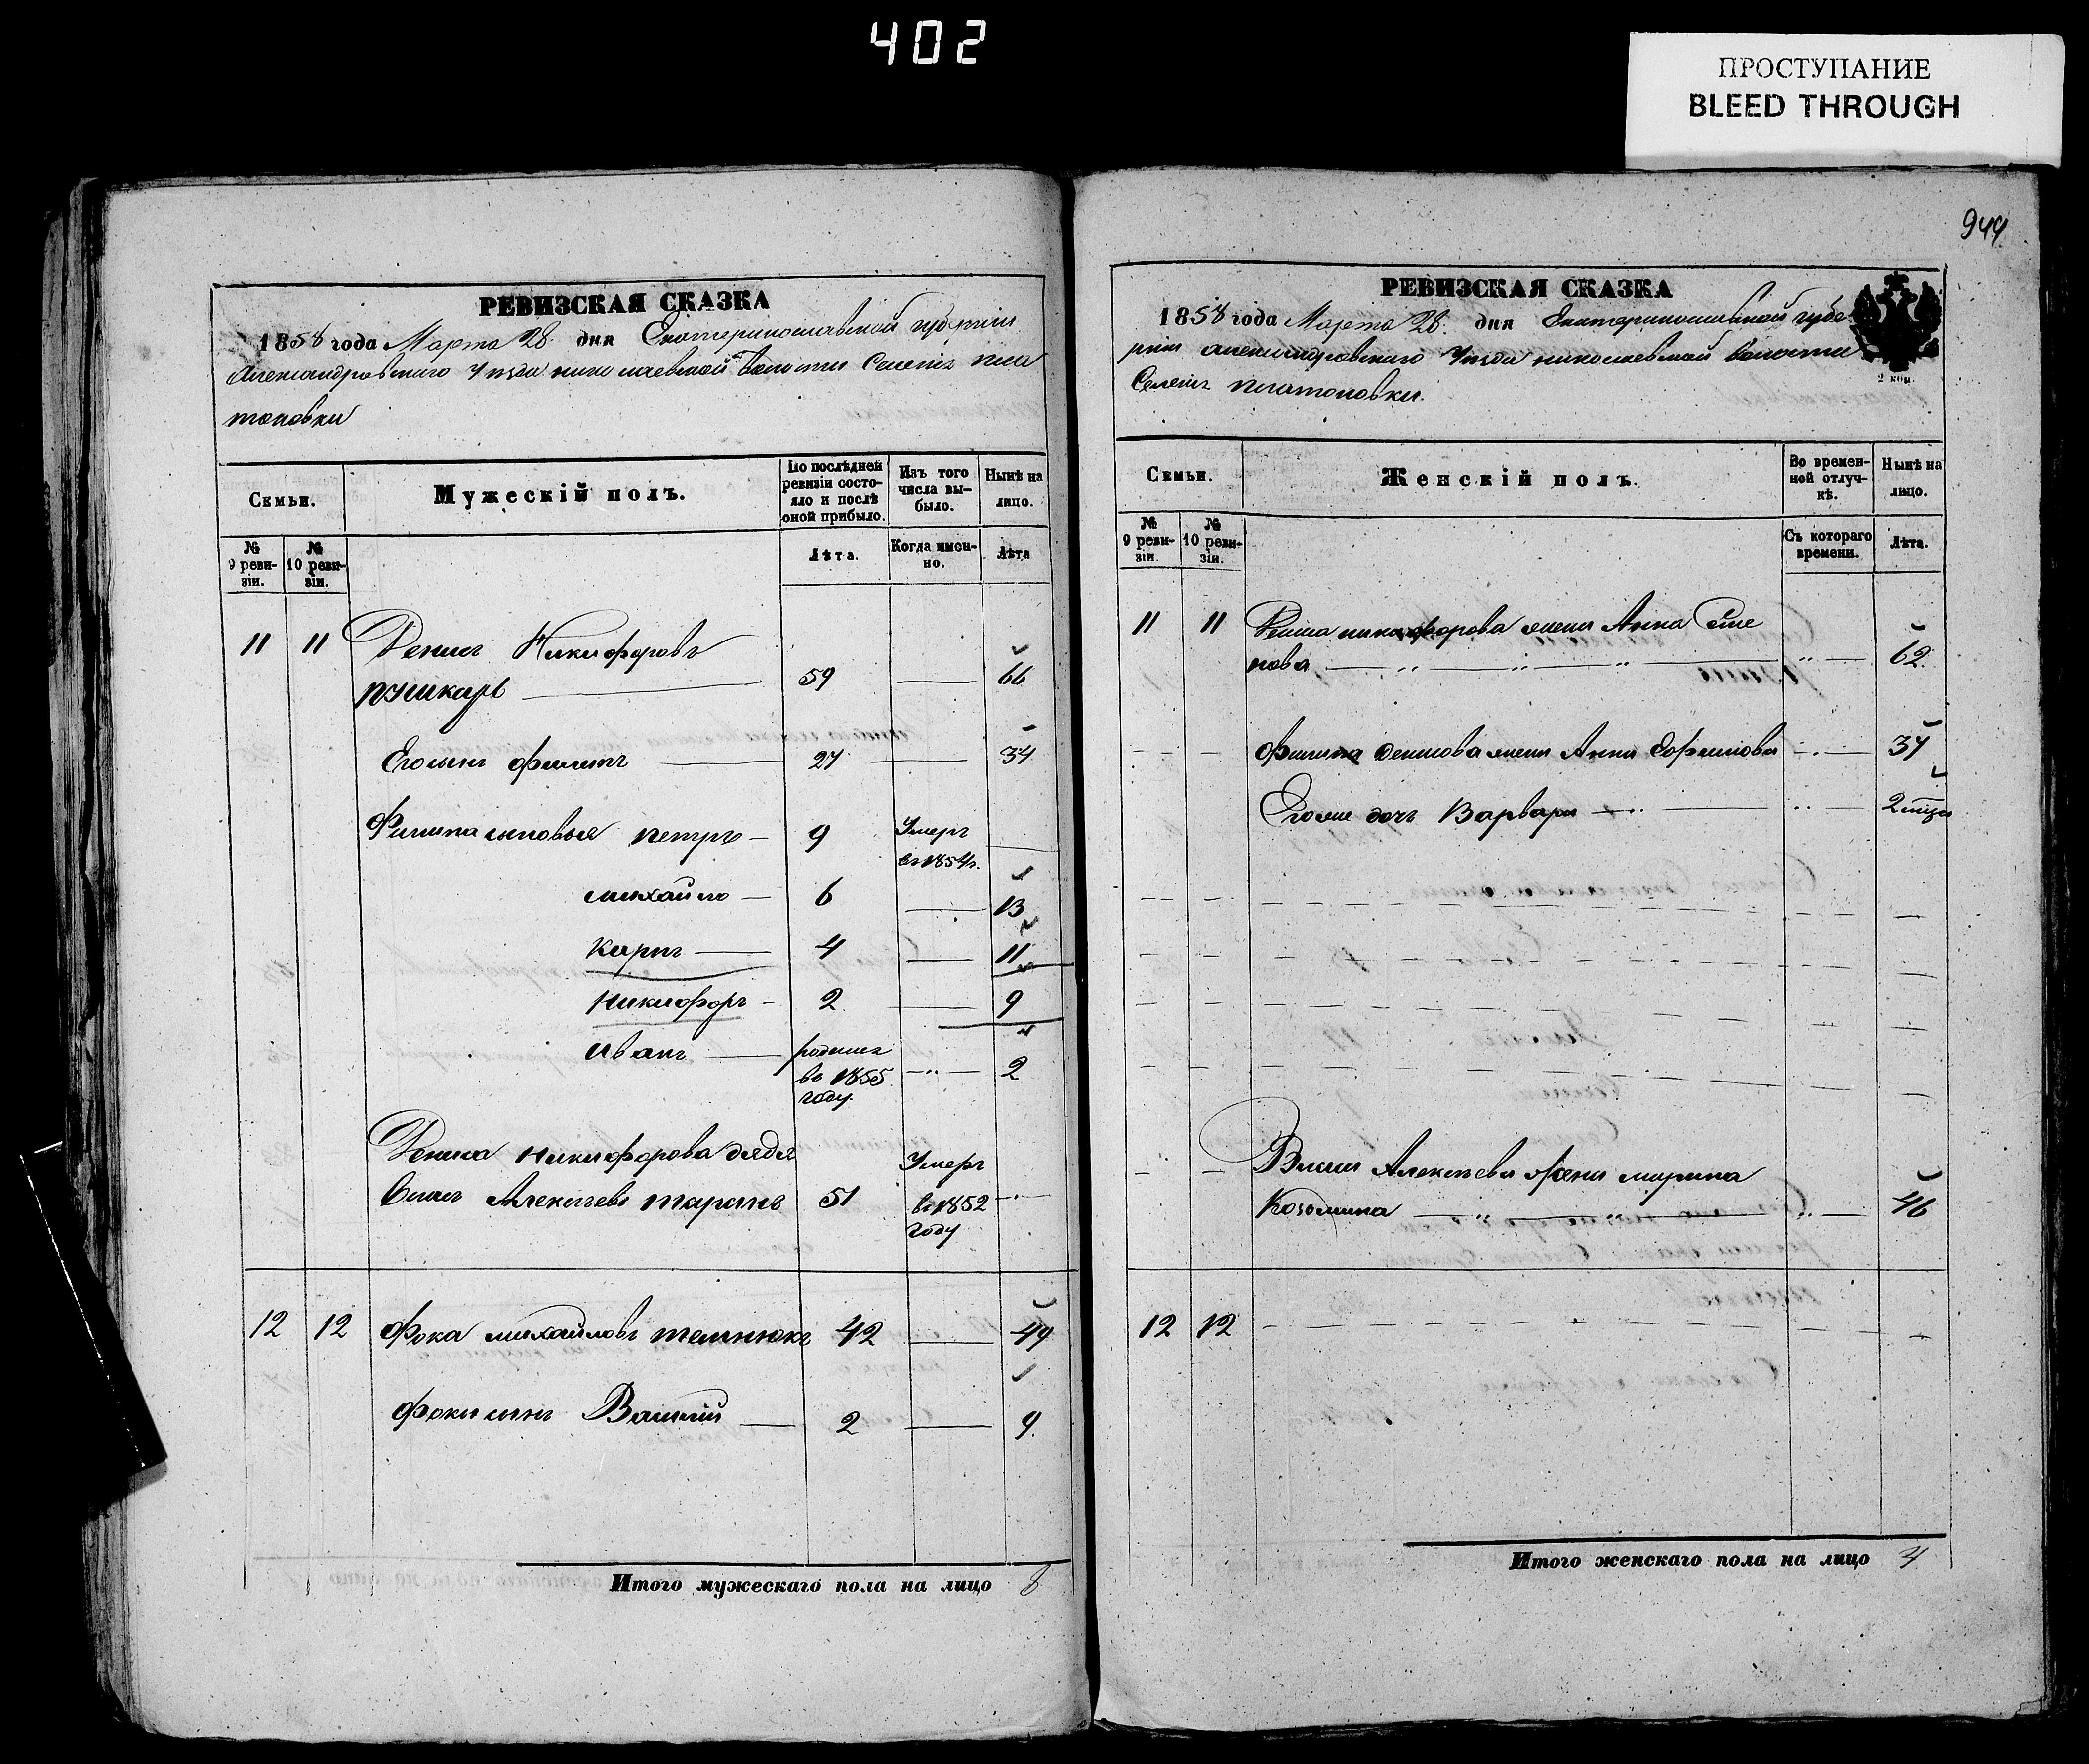 402
ПРОСТУПАНИЕ
BLEED THROUGH
944
РЕВИЗСКАЯ СКАЗКА
1858 года Марта 28 дня Екатеринославской губернии
Александровского уезда николаевской волости Селенія пла
тоновки
Семьи.
Мужескій полъ.
По послѣдней ревизіи состояло и послѣ оной прибыло.
Изъ того числа выбыло.
Нынѣ на лицо.
№ 9 ревизіи.
№ 10 ревизіи.
Лѣта.
Когда имен-но.
Лѣта
11 11 Денисъ Никифоровъ
пушкарь 59 66
Его сынъ филипъ 27 34
Филипа сыновья петръ 9 Умеръ въ 1854г.
михайло 6 13
Карпъ 4 11
Никифоръ 2 9
Иванъ родился въ 1855 году 2
Дениса Никифорова дядя
Алексѣевъ таранъ 51 Умеръ въ 1852 году
12 12 Фока михайловъ темнюкъ 42 49
Фоки сынъ Василій 2 9
Итого мужескаго пола на лицо 8
РЕВИЗСКАЯ СКАЗКА
1858 года Марта 28 дня Екатеринославской губе
рніи александровского уезда николаевской волости
Селенія платоновки.
2 коп.
Семьи.
Женскій полъ.
Во времен-ной отлуч-кѣ.
Нынѣ на лицо.
№ 9 реви-зіи.
№ 10 реви-зіи.
Съ котораго времени.
Лѣта.
11 11 Дениса никифорова жена Анна Семе
нова 62
филипа денисова жена Анна Ефимова 34
Его же дочь Варвара 2 мѣсц
Алексѣева жена марина
Козьмина 46
12 12
Итого женскаго пола на лицо 4